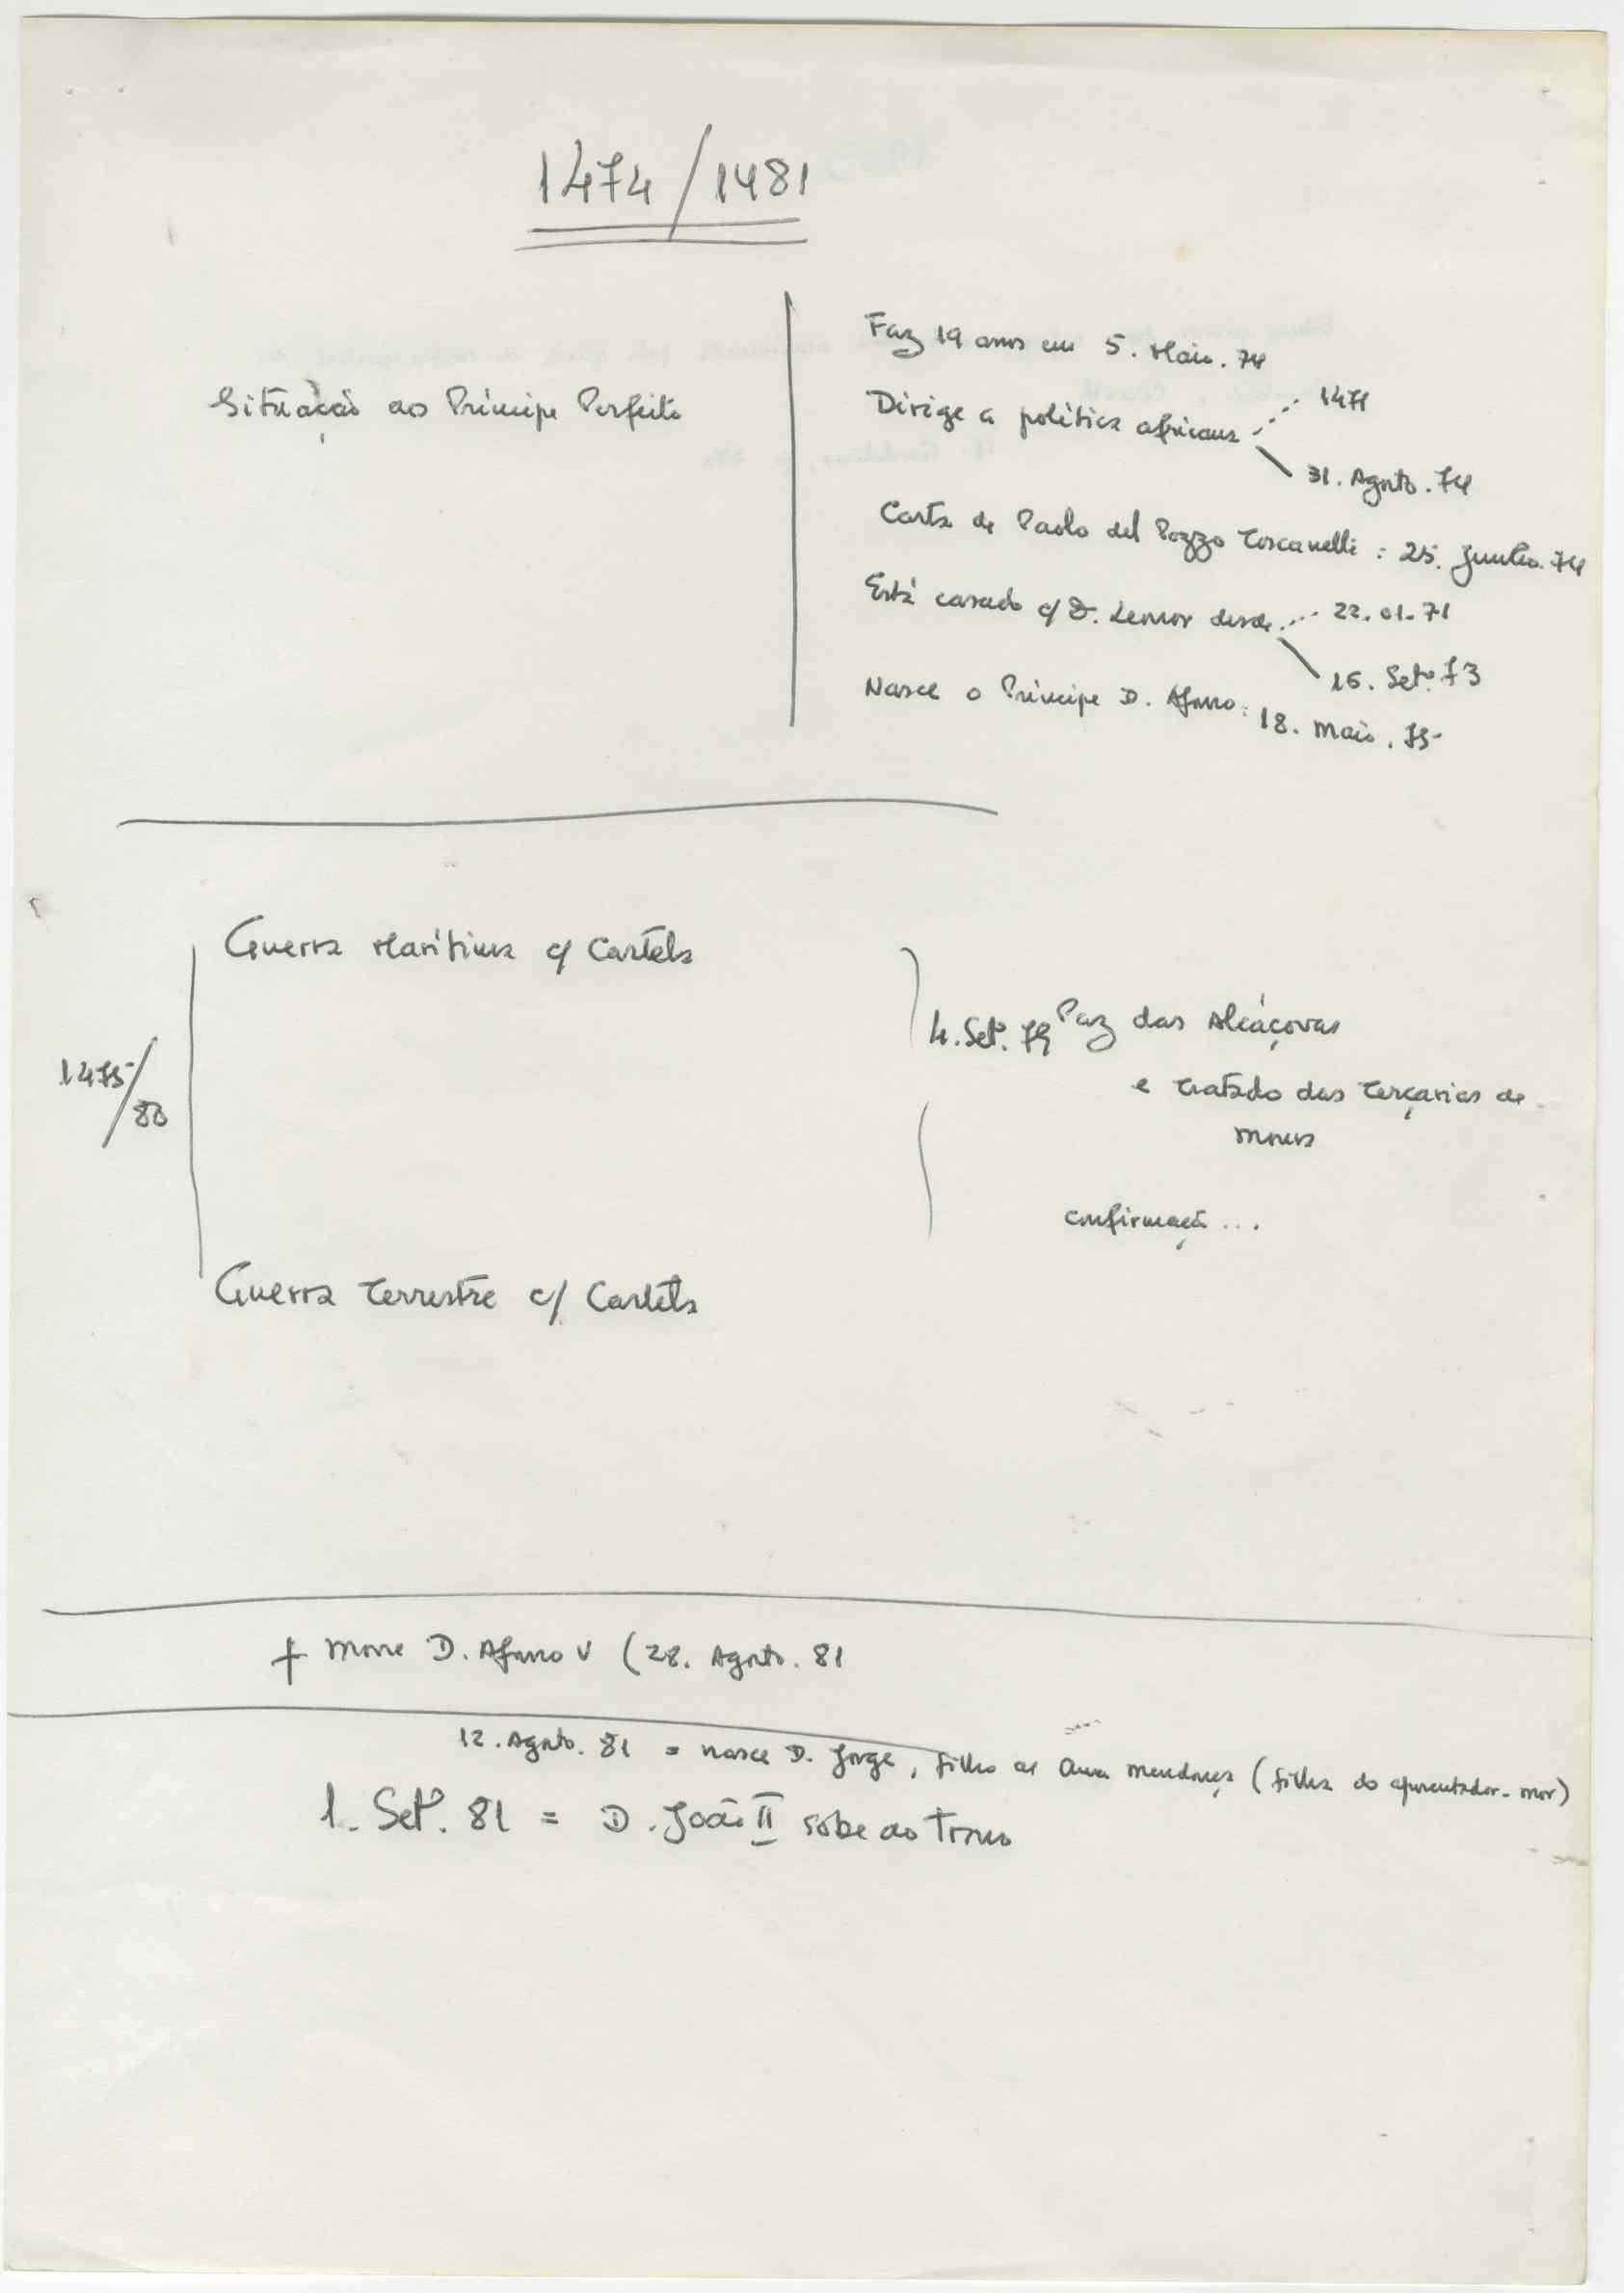 1474/1481
Situação do Príncipe Perfeito
Faz 19 anos em 5. Maio. 74
Dirige a política africana
1471
31. Agosto. 74
Carta de Paolo del Pozzo Toscanelli : 25. Junho. 74
Está casado c/ D. Leonor desde
22.01.71
16. Setº. 73
Nasce o Príncipe D. Afonso: 18. Maio. 75
1475/80
Guerra Marítima c/ Castela
4. Setº. 79 Paz das Alcáçovas
e Tratado das Terçarias de
Moura
confirmação ...
Guerra Terrestre c/ Castela
† Morre D. Afonso V (28. Agosto. 81
12. Agosto. 81 = nasce D. Jorge, filho de Ana Mendonça (filha do aposentador-mor)
1. Setº. 81 = D. João II sobe ao Trono